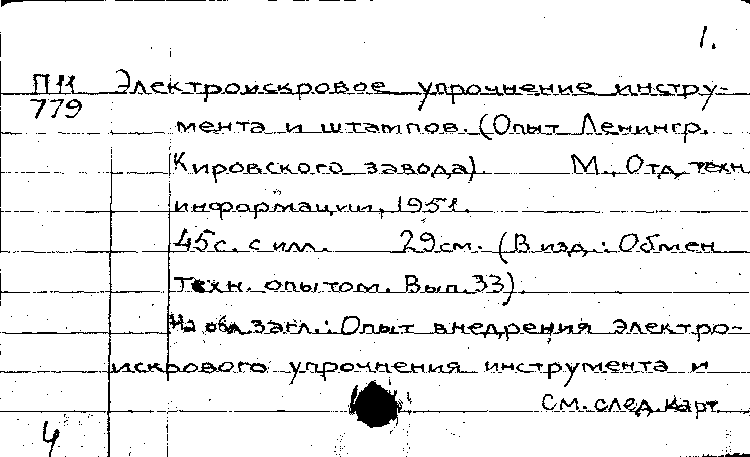 1.
П11 Электроискровое упрочнение инстру-
779
мента и штампов. (Опыт Ленингр.
Кировского завода). М., Отд. техн.
информации, 1951.
45с. с илл. 29см. (В изд.: Обмен
техн. опытом. Вып.33).
На обл. загл.: Опыт внедрения электро-
искрового упрочнения инструмента и
См. след. карт.
4